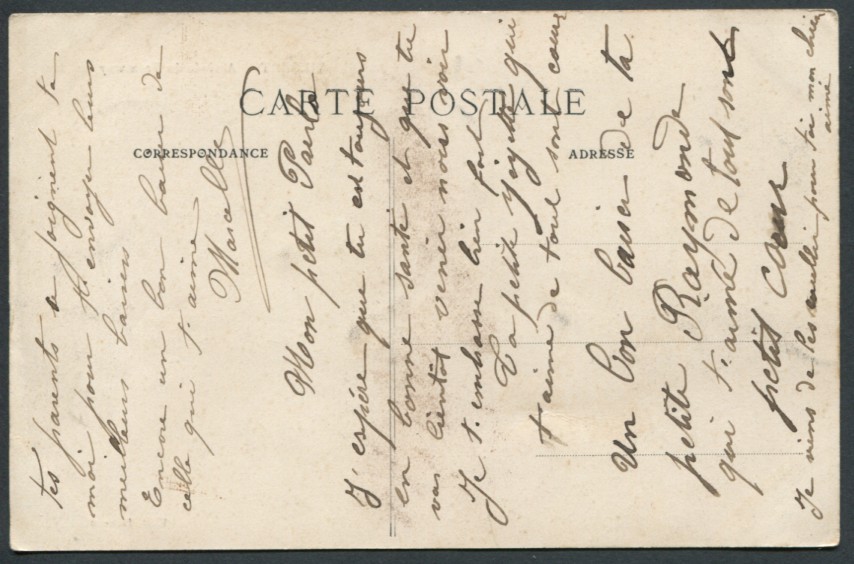 CARTE POSTALE
CORRESPONDANCE
ADRESSE
tes parents se joignent à
moi pour t'envoyer leurs
meilleurs baisers
Encore un bon baiser de
celle qui t'aime
Marcelle
Mon petit
J'espère que tu es toujours
en bonne santé et que tu
vas bientôt venir nous voir
Je t'embrasse bien fort
Ta petite qui
t'aime de tout son cœur
Un bon baiser de ta
petite Raymonde
qui t'aime de tout son
petit cœur
Je viens de les cueillir pour toi mon chéri
aimé